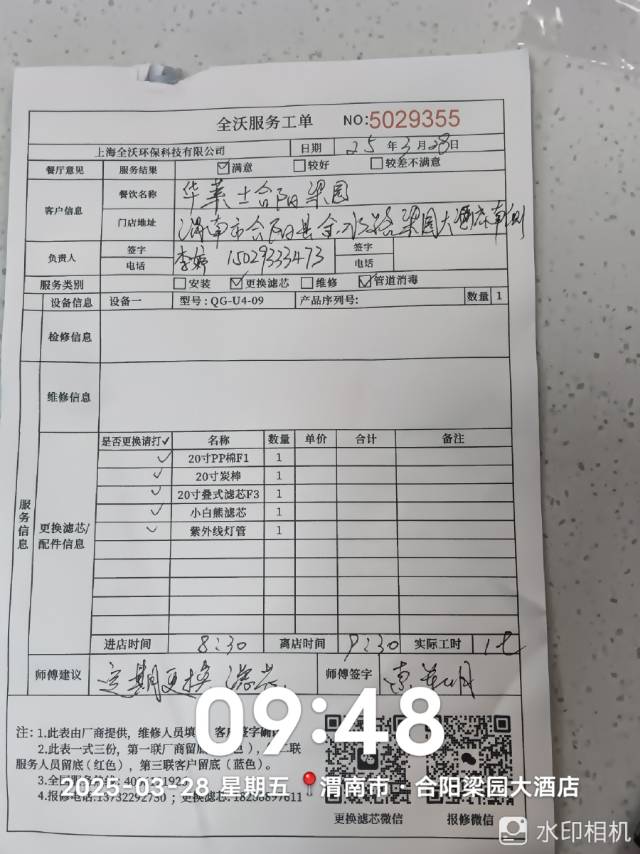 全沃服务工单 NO:5029355
上海全沃环保科技有限公司 日期 25年3月28日
餐厅意见 服务结果 ☑满意 □较好 □较差不满意
客户信息 餐饮名称 华莱士合阳梁园
门店地址 渭南市合阳县金水路梁园大酒店南侧
负责人 签字 李婷 电话 15029333473 签字 电话
服务类别 □安装 ☑更换滤芯 □维修 ☑管道消毒
设备信息 设备一 型号:QG-U4-09 产品序列号: 数量 1
检修信息
维修信息
服务信息
更换滤芯/配件信息
是否更换请打✓ 名称 数量 单价 合计 备注
✓ 20寸PP棉F1 1
✓ 20寸炭棒 1
✓ 20寸叠式滤芯F3 1
✓ 小白熊滤芯 1
✓ 紫外线灯管 1
进店时间 8:30 离店时间 9:30 实际工时
师傅建议 定期更换滤芯. 师傅签字
注:1.此表由厂商提供,维修人员填 客户签字确
2.此表一式三份,第一联厂商留底 二联
服务人员留底(红色),第三联客户留底(蓝色)。
3.全国服务热线:
4.报修电话: ;更换滤芯:
更换滤芯微信 报修微信
09:48
2025-03-28 星期五 渭南市·合阳梁园大酒店
水印相机